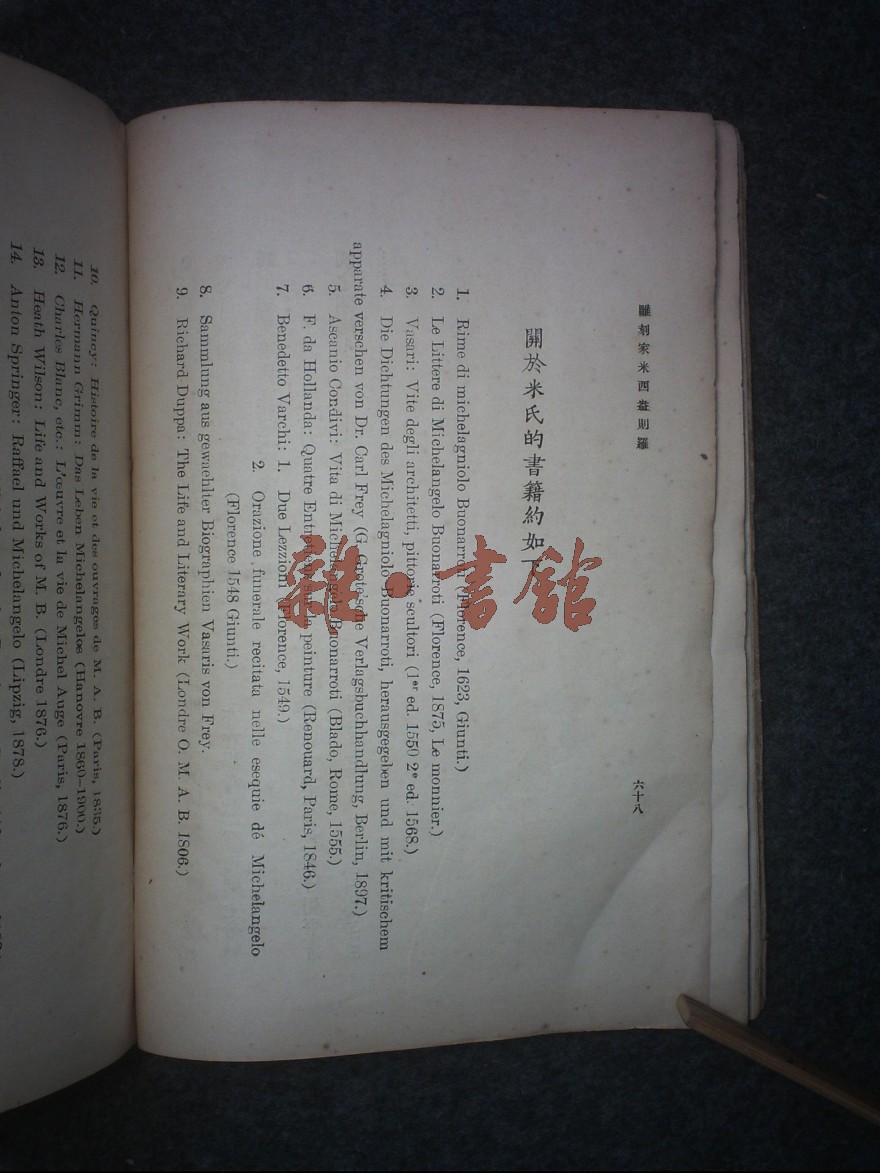 雕刻家米西盎則羅
六十八
關於米氏的書籍約如下
1. Rime di michelagniolo Buonarroti (Florence, 1623, Giunti.)
2. Le Littere di Michelangelo Buonarroti (Florence, 1875, Le monnier.)
3. Vasari: Vite degli architetti, pittori e scultori (1er ed. 1550 2e ed. 1568.)
4. Die Dichtungen des Michelagniolo Buonarroti, herausgegeben und mit kritischem
apparate verschen von Dr. Carl Frey (G. Grote'sche Verlagsbuchhandlung, Berlin, 1897.)
5. Ascanio Condivi: Vita di Michelangelo Buonarroti (Blado, Rome, 1555.)
6. F. da Hollanda: Quatre Entretiens sur la peinture (Renouard, Paris, 1846.)
7. Benedetto Varchi: 1. Due Lezzioni (Florence, 1549.)
2. Orazione funerale recitata nelle esequie dé Michelangelo
(Florence 1548 Giunti.)
8. Sammlung aus gewaehlter Biographien Vasaris von Frey.
9. Richard Duppa: The Life and Literary Work (Londre O. M. A. B. 1806.)
10. Quincy: Histoire de la vie et des ouvrages de M. A. B. (Paris, 1835.)
11. Hermann Grimm: Das Leben Michelangelos (Hanovre 1860-1900.)
12. Charles Blanc, etc.: L'œuvre et la vie de Michel Auge (Paris, 1876.)
13. Heath Wilson: Life and Works of M. B. (Londre 1876.)
14. Anton Springer: Raffael und Michelangelo (Lipzig, 1878.)
謎·書館